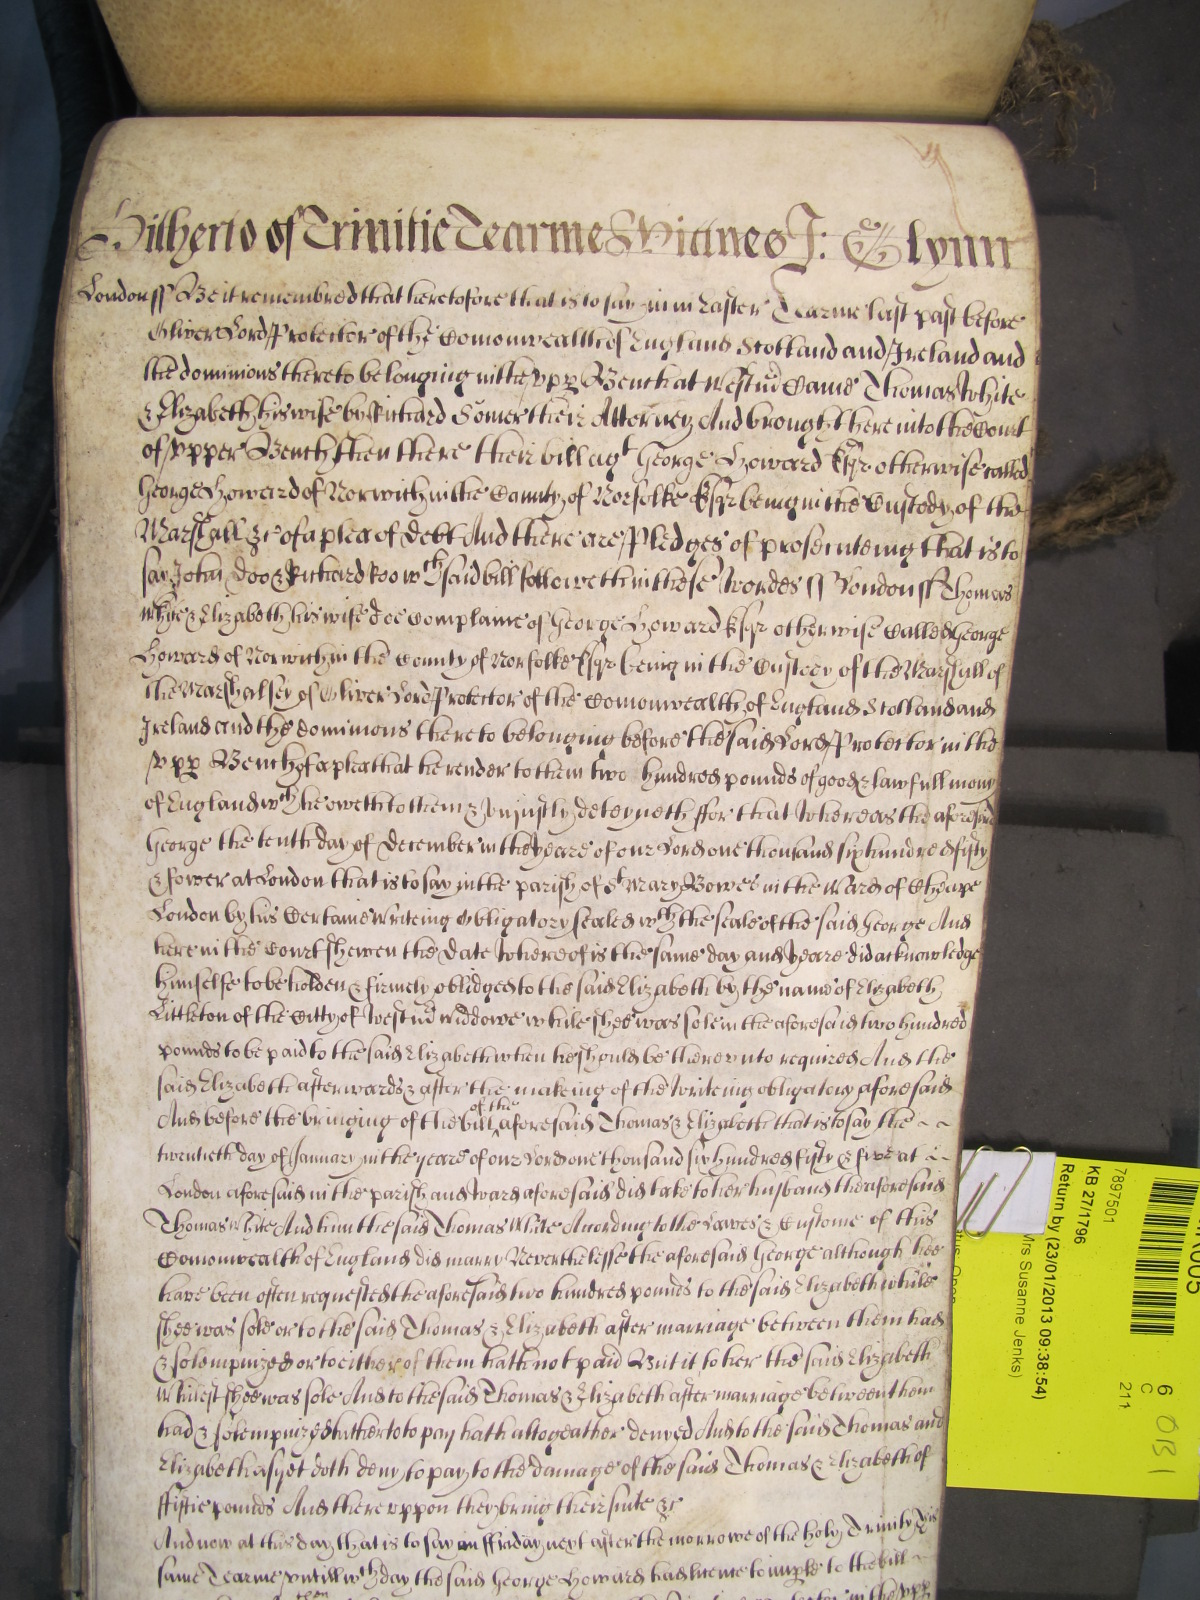 Hitherto of Trinitie Tearme Wittnes J: Glynn
London ss Be it remembred that heretofore that is to say in Easter Tearme last past before
Oliver Lord Protector of the Comonwealth of England Scotland and Ireland and
the dominions thereto belonging in the vpp Bench at Westmr Came Thomas White
& Elizabeth his wife by Richard Somer their Atterney And brought here into the Court
of vpper Bench then there their bill agt George Howard Esqr otherwise called
George Howard of Norwich in the County of Norfolke Esqr being in the Custody of the
Marshall &c of a plea of debt And there are Pledges of prosecuteing that is to
say John Doo & Richard Roo wch said bill followeth in these wordes ss London ss Thomas
White & Elizabeth his wife doe Complaine of George Howard Esqr otherwise Called George
Howard of Norwich in the County of Norfolke Esqr being in the Custody of the Marshall of
the Marshalsey of Oliver Lord Protector of the Comonwealth of England Scotland and
Ireland and the dominions thereto belonging before the said Lord Protector in the
vpp Bench of a plea that he render to them two hundred pounds of good & lawfull mony
of England wch he oweth to them & vniustly deteyneth ffor that Whereas the aforesaid
George the tenth day of December in the yeare of our Lord one thousand six hundred fifty
& fower at London that is to say in the parish of St Mary Bowe in the Ward of Cheape
London by his Certaine Writeing Obligatory sealed wth the seale of the said George And
here in the Court shewen the date whereof is the same day and yeare did acknowledge
himselfe to be holden & firmely obliged to the said Elizabeth by the name of Elizabeth
Littleton of the Citty of Westmr widdowe while shee was sole in the aforesaid two hundred
pounds to be paid to the said Elizabeth when he should be therevnto required And the
said Elizabeth afterwards & after the makeing of the writeing obligatory aforesaid
And before the bringing of the bill of the aforesaid Thomas & Elizabeth that is to say the
twentieth day of January in the yeare of our Lord one thousand six hundred fifty & five at
London aforesaid in the parish and ward aforesaid did take to her husband the aforesaid
Thomas White And him the said Thomas White According to the Lawes & Custome of this
Comonwealth of England did marry Neverthelesse the aforesaid George although hee
have been often requested the aforesaid two hundred pounds to the said Elizabeth while
shee was sole or to the said Thomas & Elizabeth after marriage between them had
& solempnized or to either of them hath not paid But it to her the said Elizabeth
Whilest shee was sole And to the said Thomas & Elizabeth after marriage between them
had & solempnized hitherto to pay hath altogeather denyed And to the said Thomas and
Elizabeth as yet doth deny to pay to the damage of the said Thomas & Elizabeth of
ffiftie pounds And therevppon they bring their suite &c
And now at this day that is to say on ffriday next after the morrowe of the holy Trinity this
same Tearme vntill wch day the said George Howard had licence to imple to the bill
then
in the vpp
7897501
KB 27/1796
Return by (23/01/2013 09:38:54)
Mrs Susanne Jenks)
6
C
211
OBI